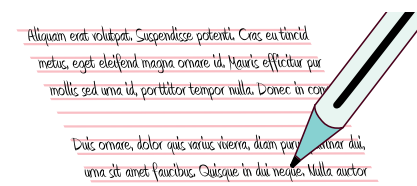 Aliquam erat volutpat. Suspendisse potenti. Cras eu tincid
metus, eget eleifend magna ornare id. Mauris efficitur pur
mollis sed urna id, porttitor tempor nulla. Donec in con
Duis ornare, dolor quis varius viverra, diam puru inar dui,
urna sit amet faucibus. Quisque in dui neque. Nulla auctor